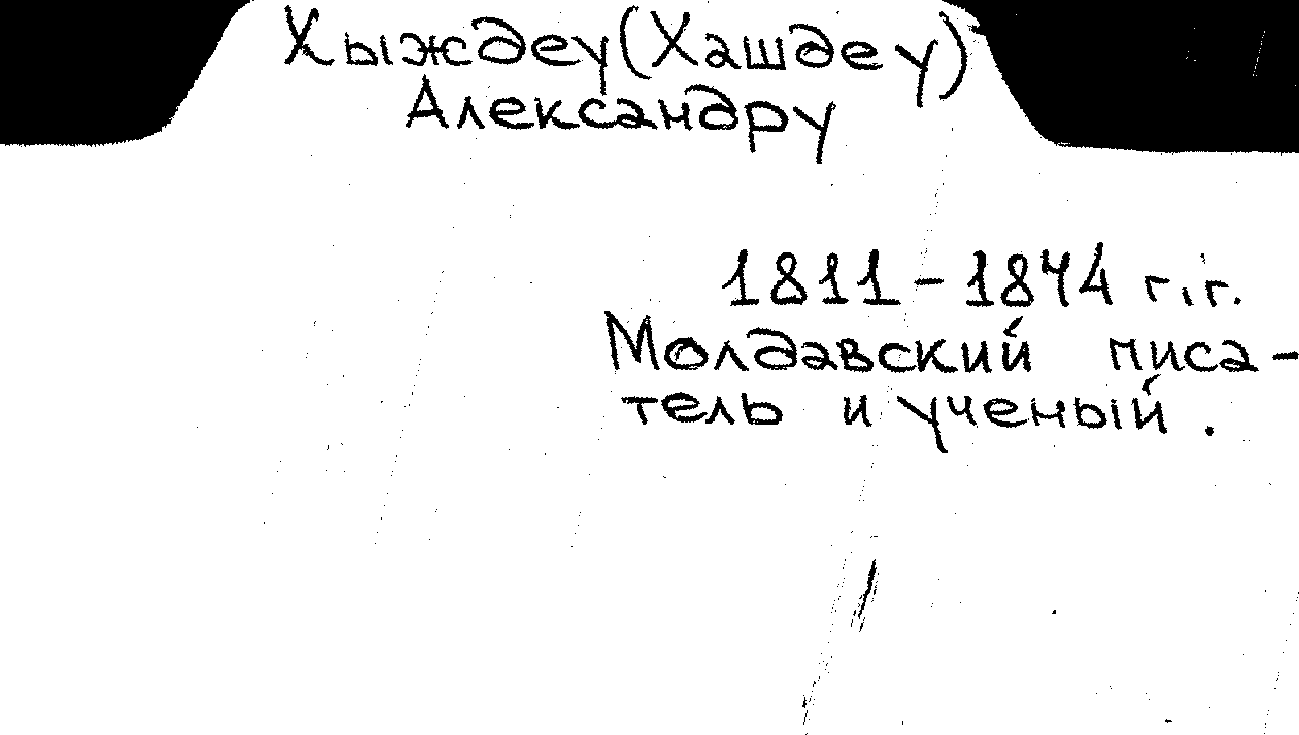 Хыждеу (Хашдеу)
Александру
1811-1874 г.г.
Молдавский писа-
тель и ученый.